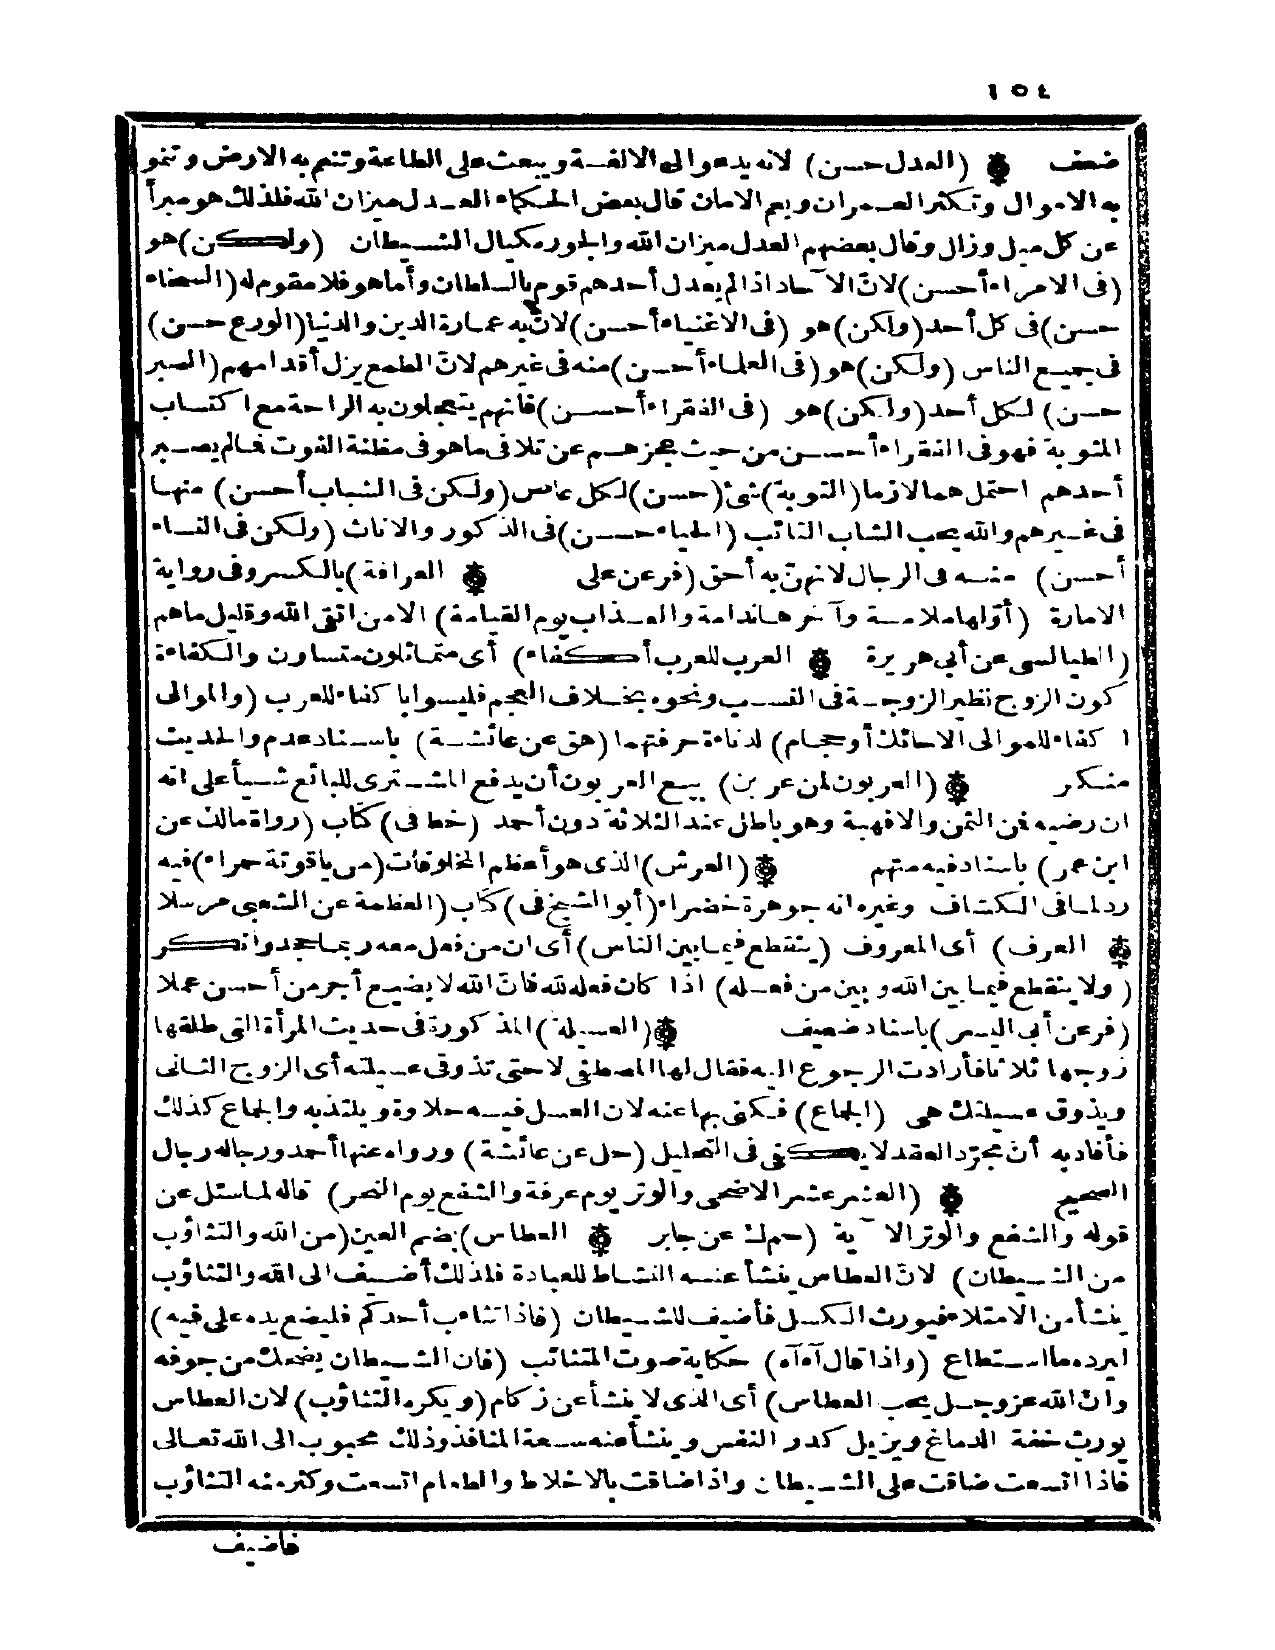 ١٥٤
ضعف ۞ (العدل حسن) لانه يدعو الى الالفــة ويبعث على الطاعة وتنم به الارض وتنمو
به الاموال وتكثر العمران ويعم الامان قال بعض الحكماء العدل ميزان الله فلذلك هو مبرأ
عن كل ميل وزال وقال بعضهم العدل ميزان الله والجور مكيال الشيطان (ولكن) هو
(فى الامراء أحسن) لانّ الآحاد اذا لم يعدل أحدهم قوم بالسلطان وأما هو فلا مقوم له (السخاء
حسن) فى كل أحد (ولكن) هو (فى الاغنياء أحسن) لانّ به عمارة الدين والدنيا (الورع حسن)
فى جميع الناس (ولكن) هو (فى العلماء أحسن) منه فى غيرهم لانّ الطمع يزل أقدامهم (الصبر
حسن) لكل أحد (ولكن) هو (فى الفقراء أحسن) فانهم يتعجلون به الراحة مع اكتساب
المثوبة فهو فى الفقراء أحسن من حيث عجزهم عن تلافى ما هو فى مظنة الفوت فمالم يصبر
أحدهم احتمل هما لازما (التوبة) شئ (حسن) لكل عاص (ولكن فى الشباب أحسن) منها
فى غيرهم والله يحب الشاب التائب (الحياء حسن) فى الذكور والاناث (ولكن فى النساء
أحسن) منه فى الرجال لانهنّ به أحق (فر عن على ۞ العرافة) بالكسر وفى رواية
الامارة (أوّلها ملامة وآخرها ندامة والعذاب يوم القيامة) الا من اتقى الله وقليل ما هم
(الطيالسى عن أبى هريرة ۞ العرب للعرب أكفاء) أى متماثلون متساون والكفاءة
كون الزوج نظير الزوجة فى النسب ونحوه بخلاف العجم فليسوا باكفاء للعرب (والموالى
اكفاء للموالى الاحائك أو حجام) لدناءة حرفتهما (هق عن عائشة) باسناد عدم والحديث
منكر ۞ (العربون لمن عربن) بيع العربون أن يدفع المشترى للبائع شيأ على انه
ان رضيه فمن الثمن والا فهبة وهو باطل عند الثلاثة دون أحمد (خط فى) كتاب (رواة مالك عن
ابن عمر) باسناد فيه متهم ۞ (العرش) الذى هو أعظم المخلوقات (من ياقوتة حمراء) فيه
رد لما فى الكشاف وغيره انه جوهرة خضراء (أبو الشيخ فى) كتاب (العظمة عن الشعبى مرسلا
۞ العرف) أى المعروف (ينقطع فيما بين الناس) أى ان من فعل معه ربما جحد وانكر
(ولا ينقطع فيما بين الله وبين من فعله) اذا كان فعله لله فانّ الله لا يضيع أجر من أحسن عملا
(فر عن أبى اليسر) باسناد ضعيف ۞ (العسيلة) المذكورة فى حديث المرأة التى طلقها
زوجها ثلاثا فأرادت الرجوع اليه فقال لها المصطفى لا حتى تذوقى عسيلته أى الزوج الثانى
ويذوق عسيلتك هى (الجماع) فكنى بها عنه لان العسل فيه حلاوة ويلتذ به والجماع كذلك
فأفاد به أنّ مجرّد العقد لا يكفى فى التحليل (حل عن عائشة) ورواه عنها أحمد ورجاله رجال
الصحيح ۞ (العشر عشر الاضحى والوتر يوم عرفة والشفع يوم النحر) قاله لما سئل عن
قوله والشفع والوتر الآية (حم ك عن جابر ۞ العطاس) بضم العين (من الله والتثاؤب
من الشيطان) لانّ العطاس ينشأ عنه النشاط للعبادة فلذلك أضيف الى الله والتثاؤب
ينشأ من الامتلاء فيورث الكسل فأضيف للشيطان (فاذا تثاءب أحدكم فليضع يده على فيه)
ليرده ما استطاع (واذا قال آه آه) حكاية صوت المتثائب (فان الشيطان يضحك من جوفه
وانّ الله عز وجل يحب العطاس) أى الذى لا ينشأ عن زكام (ويكره التثاؤب) لان العطاس
يورث خفة الدماغ ويزيل كدر النفس وينشأ عنه سعة المنافذ وذلك محبوب الى الله تعالى
فاذا اتسعت ضاقت على الشيطان واذا ضاقت بالاخلاط والطعام اتسعت وكثر منه التثاؤب
فاضيف